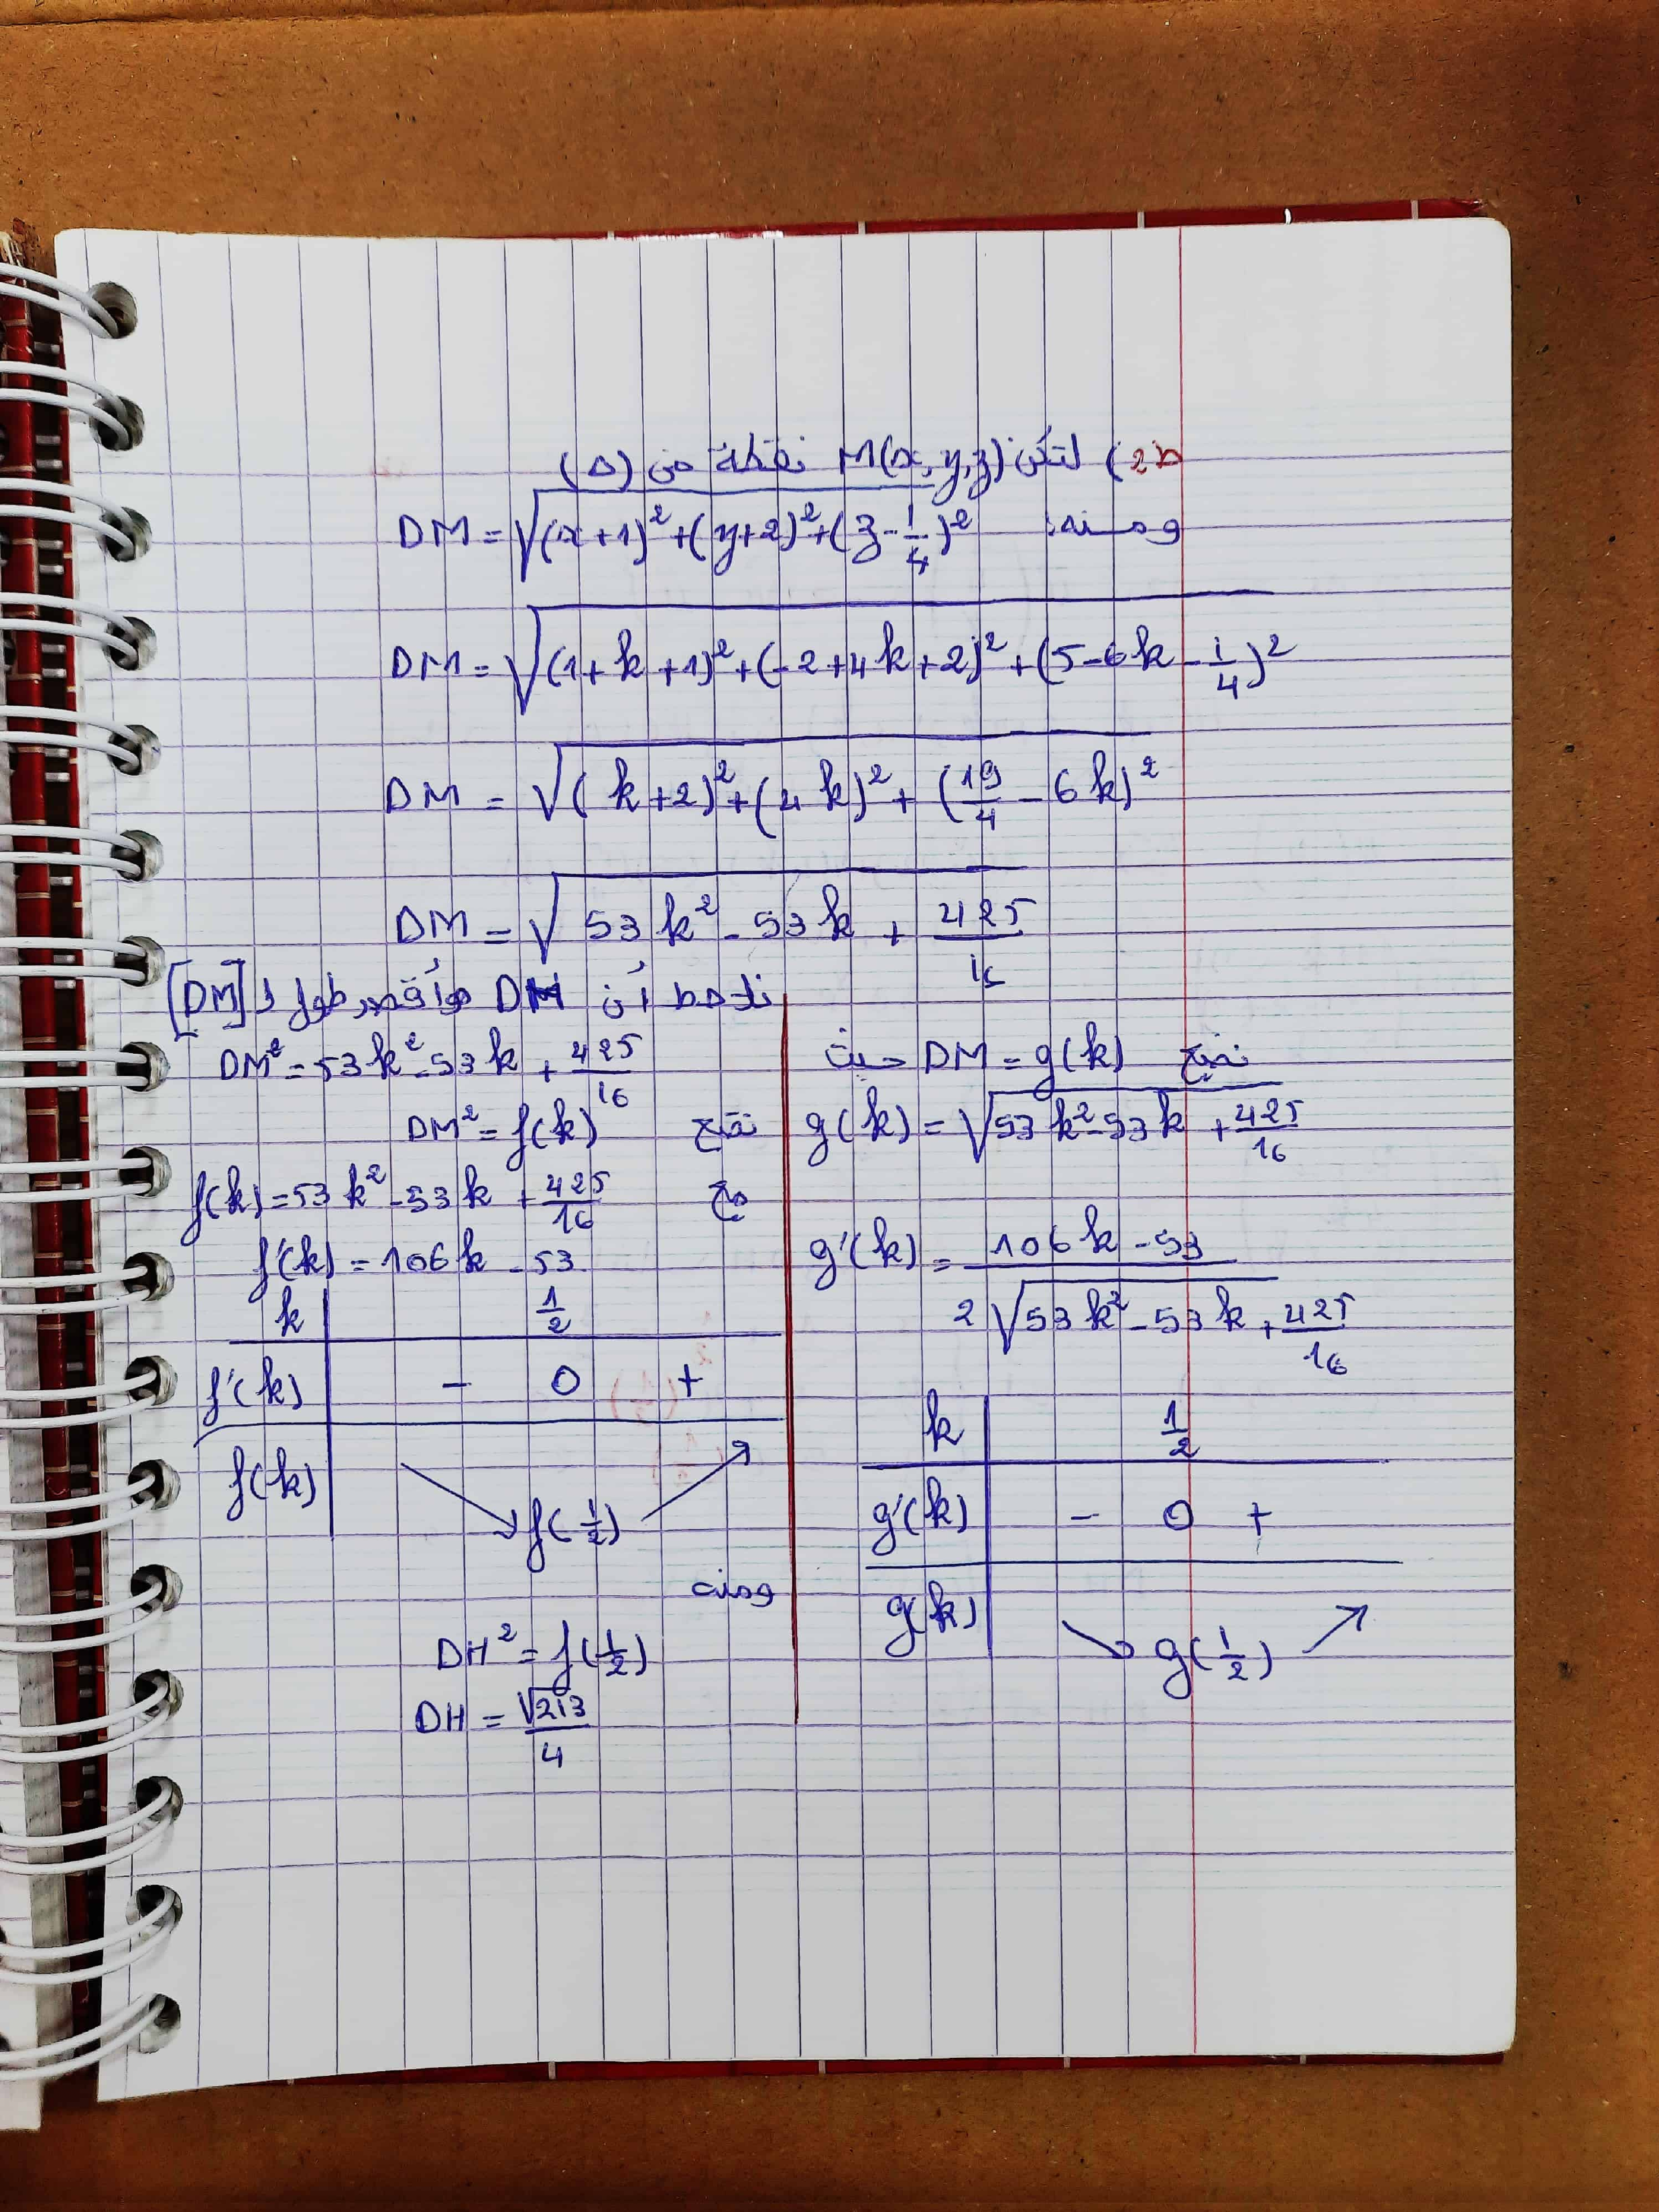 ط2) لتكن M(x,y,z) نقطة من (Δ)
ومنه: DM = √((x+1)²+(y+2)²+(z-1/4)²)
DM = √((1+k+1)²+(-2+4k+2)²+(5-6k-1/4)²)
DM = √((k+2)²+(4k)²+(19/4-6k)²)
DM = √(53k²-53k+425/16)
نلاحظ أن DH هو أقصر طول لـ [DM]
DM² = 53k²-53k+425/16
نضع DM² = f(k)
مع f(k) = 53k²-53k+425/16
f'(k) = 106k-53
k 1/2
f'(k) - 0 +
f(k) ↘ f(1/2) ↗
ومنه
DH² = f(1/2)
DH = √213/4
نضع DM = g(k) حيث
g(k) = √(53k²-53k+425/16)
g'(k) = (106k-53)/(2√(53k²-53k+425/16))
k 1/2
g'(k) - 0 +
g(k) ↘ g(1/2) ↗